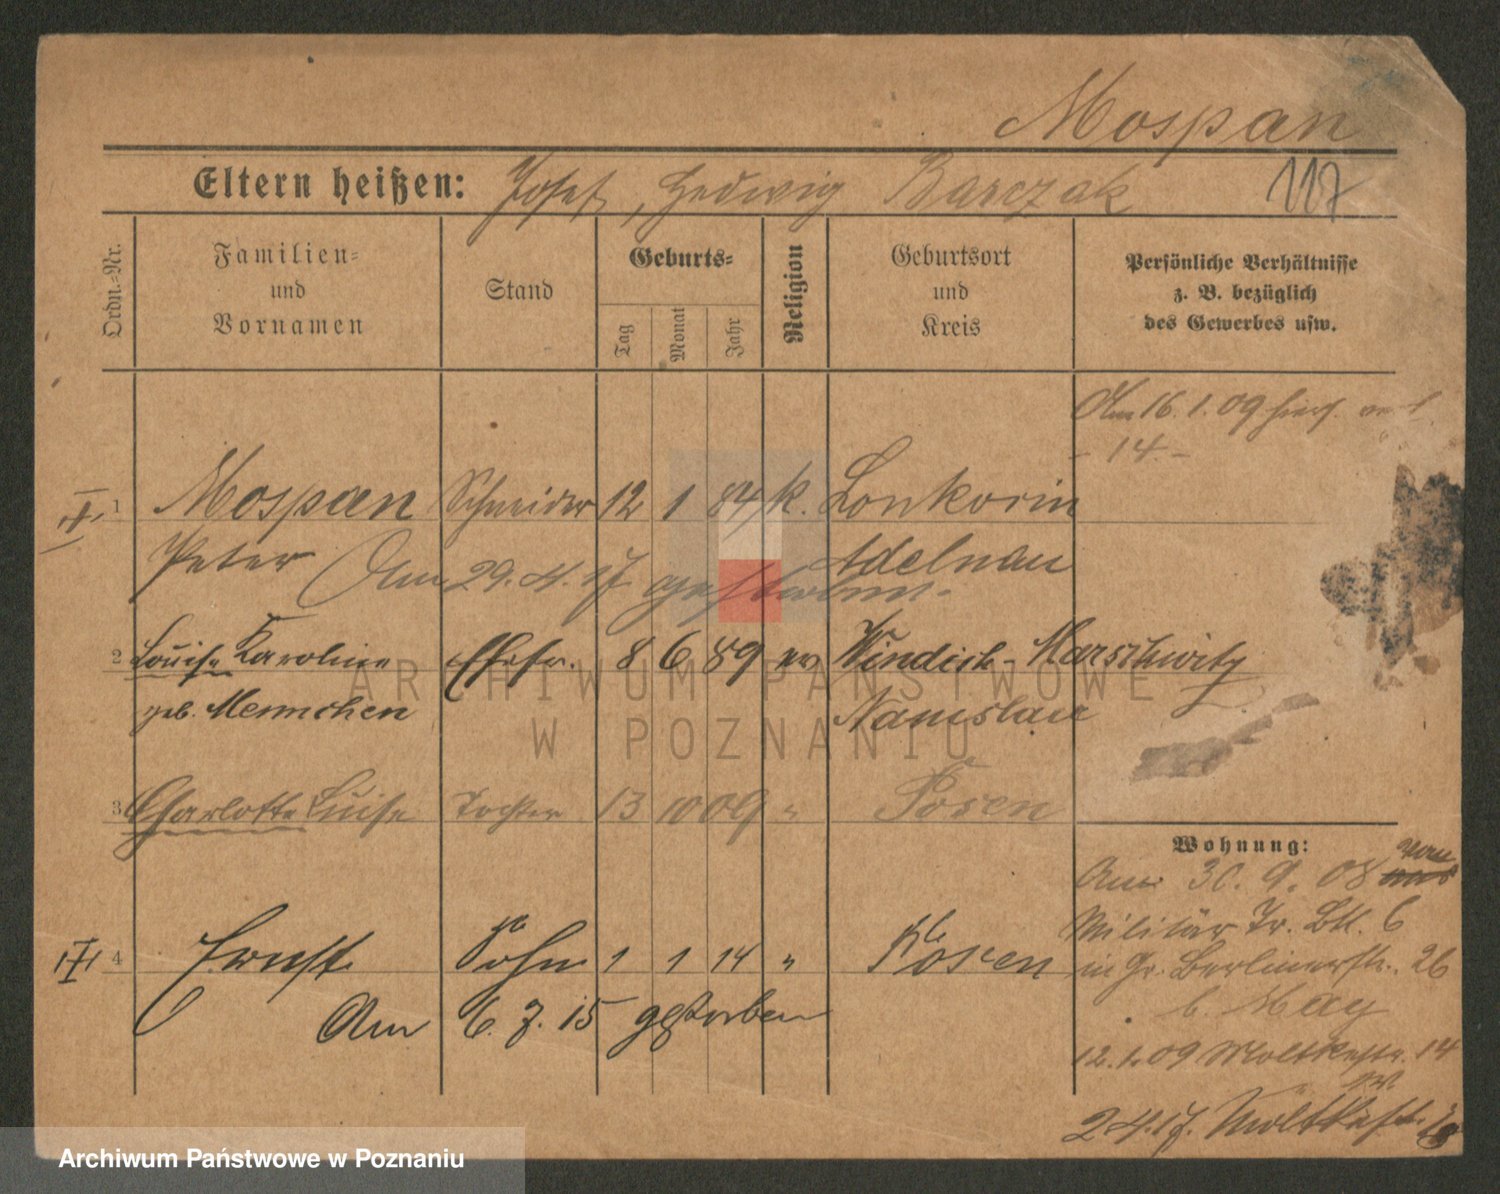 Mospan
Eltern heißen: Josef, Hedwig Barczak 117
Ordn.-Nr.
Familien- und Vornamen
Stand
Geburts-
Tag Monat Jahr
Religion
Geburtsort und Kreis
Persönliche Verhältnisse z. B. bezüglich des Gewerbes usw.
Am 16.1.09 hies.
- 14 -
1 Mospan Schneider 12 1 84 k. Lonkocin
Peter Am 29.4.17 gestorben. Adelnau
2 Louise Karoline Ehefr. 8 6 89 ev Windisch-Marschwitz
geb. Mennchen Namslau
3 Charlotte Luise Tochter 13 10 09 " Posen
4 Ernst Sohn 1 1 14 " Posen
Am 6.7.15 gestorben
Wohnung:
Am 30.9.08 von
Militär Tr. Btl. 6
in Gr. Berlinerstr. 26
b. May
12.1.09 Moltkestr. 14
24.17. Moltkestr.
ARCHIWUM PAŃSTWOWE
W POZNANIU
Archiwum Państwowe w Poznaniu